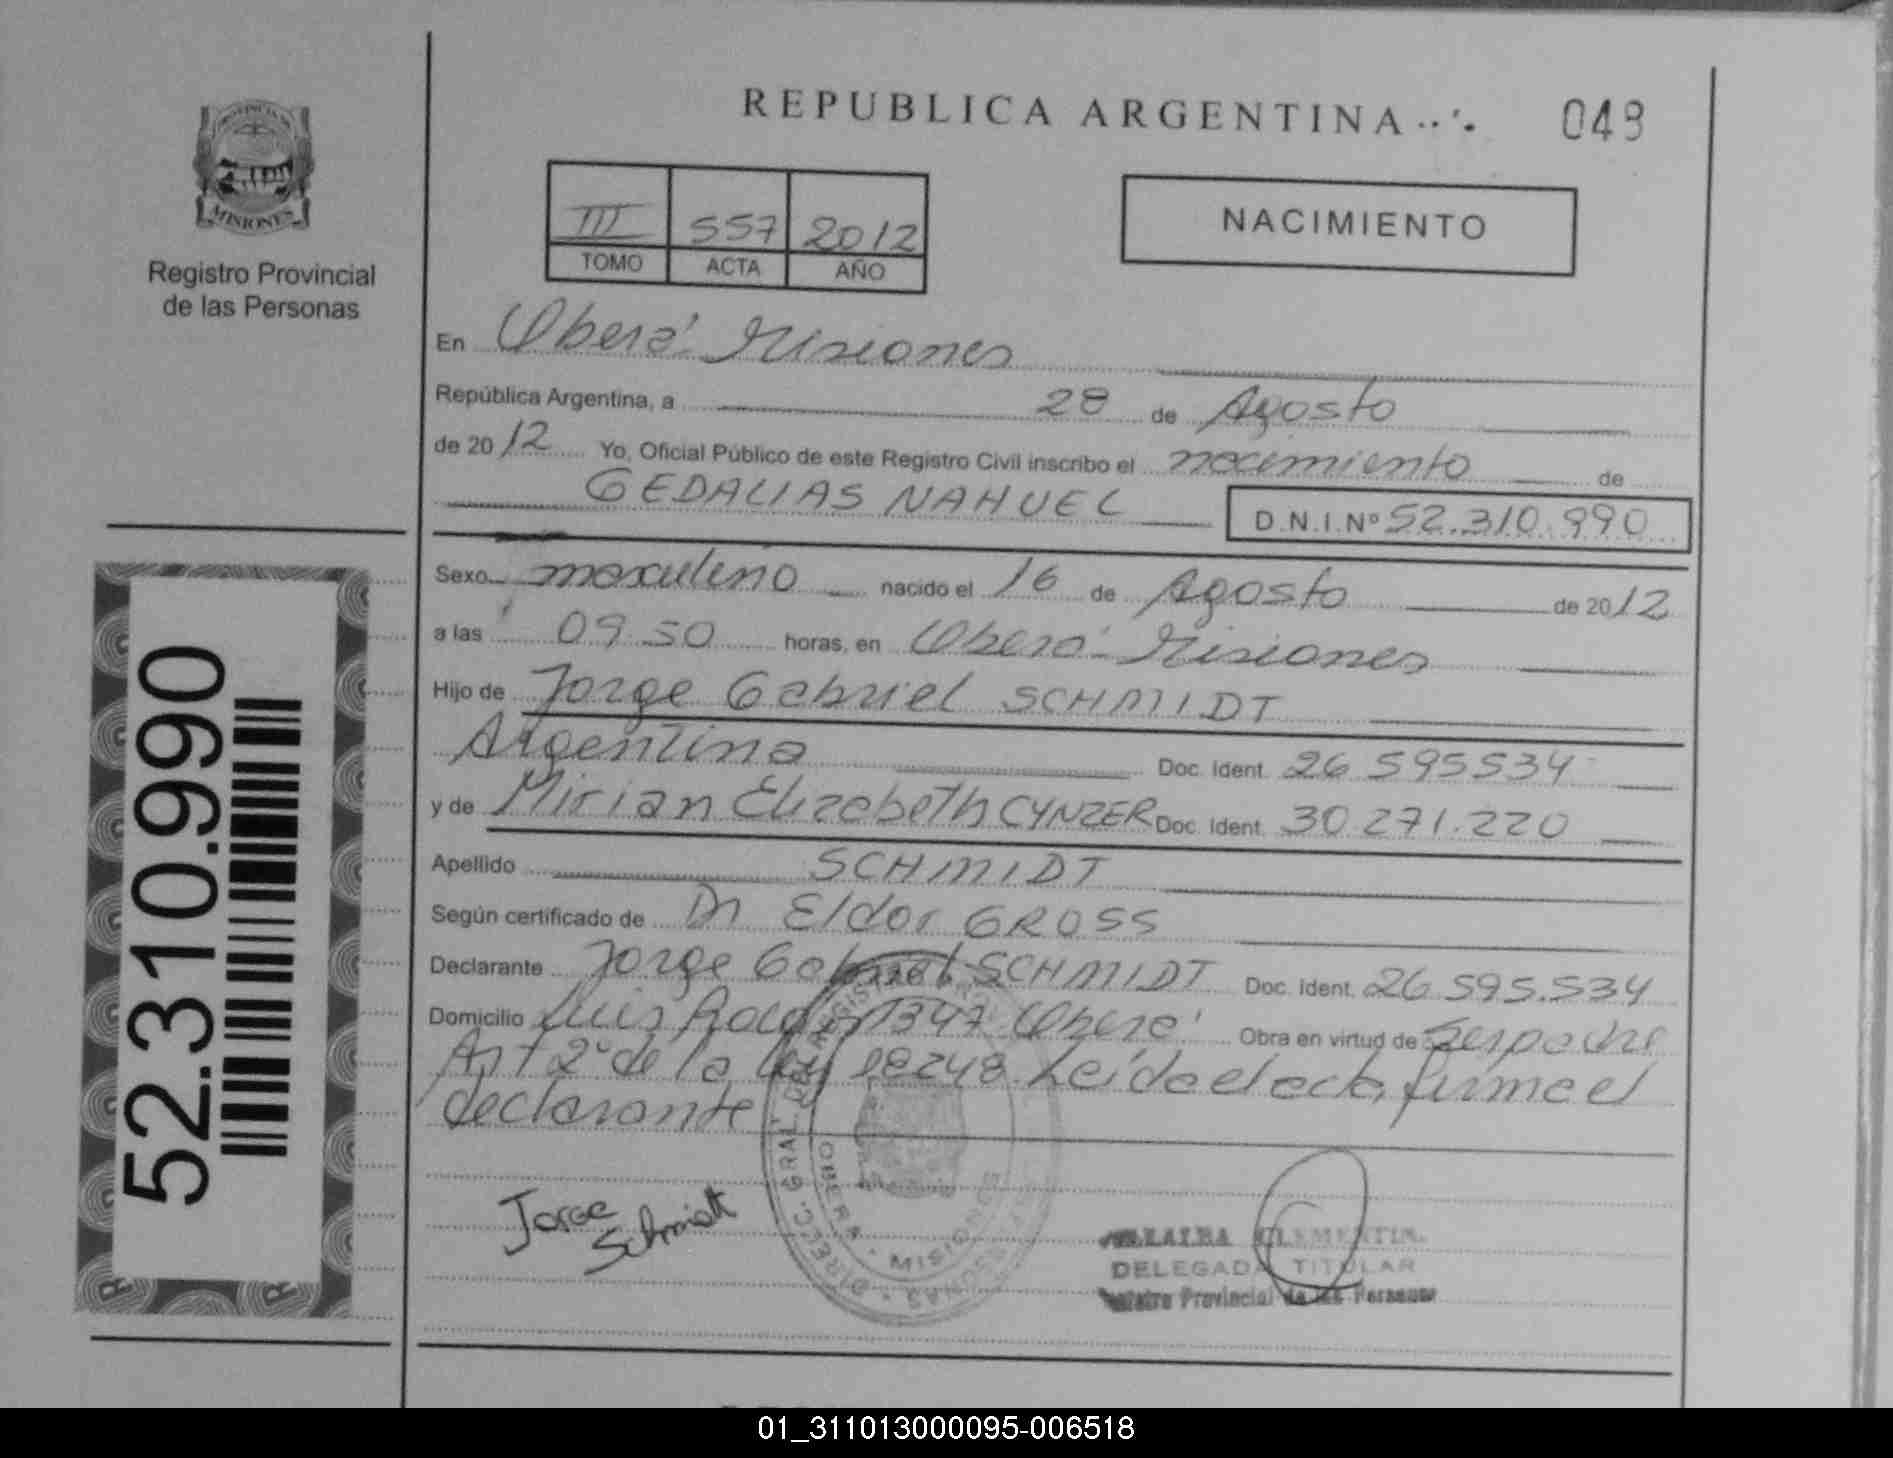 REPUBLICA ARGENTINA
049
MISIONES
Registro Provincial
de las Personas
III 557 2012
TOMO ACTA AÑO
NACIMIENTO
En Oberá Misiones
República Argentina, a 28 de Agosto
de 2012 Yo, Oficial Público de este Registro Civil inscribo el nacimiento de
GEDALIAS NAHUEL D.N.I.Nº 52.310.990
Sexo masculino nacido el 16 de Agosto de 2012
a las 09.50 horas, en Oberá Misiones
Hijo de Jorge Gabriel SCHMIDT
Argentina Doc. Ident. 26 595534
y de Mirian Elizabeth CYNZER Doc. Ident. 30.271.220
Apellido SCHMIDT
Según certificado de Dr Eldor GROSS
Declarante Jorge Gabriel SCHMIDT Doc. Ident. 26.595.534
Domicilio Luis 1347 Oberá Obra en virtud de Ser padre
Art 2º de la ley 18248 Leída el acta, firma el
declarante
Jorge
Schmidt
DIREC. GRAL. DEL REGISTRO PERSONAS
OBERA - MISIONES
VILLALBA CLEMENTINA
DELEGADA TITULAR
Registro Provincial de las Personas
52.310.990
01_311013000095-006518